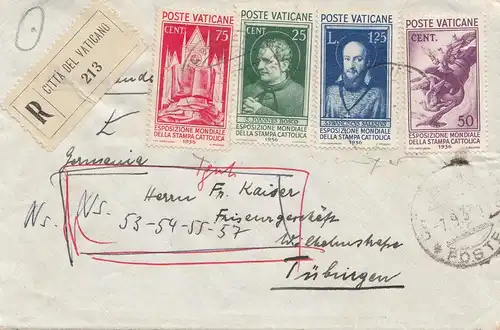 POSTE VATICANE
CENT. 75
ESPOSIZIONE MONDIALE
DELLA STAMPA CATTOLICA
1936
POSTE VATICANE
CENT. 25
S. JOANNES BOSCO
ESPOSIZIONE MONDIALE
DELLA STAMPA CATTOLICA
1936
POSTE VATICANE
L. 1,25
S. FRANCISCUS SALESIUS
ESPOSIZIONE MONDIALE
DELLA STAMPA CATTOLICA
1936
POSTE VATICANE
CENT.
50
ESPOSIZIONE MONDIALE
DELLA STAMPA CATTOLICA
1936
R CITTÀ DEL VATICANO
213
Germania
Herrn Fr. Kaiser
Friseurgeschäft
Ns. Ns. 53-54-55-57
Wilhelmstraße
Tübingen
POSTE